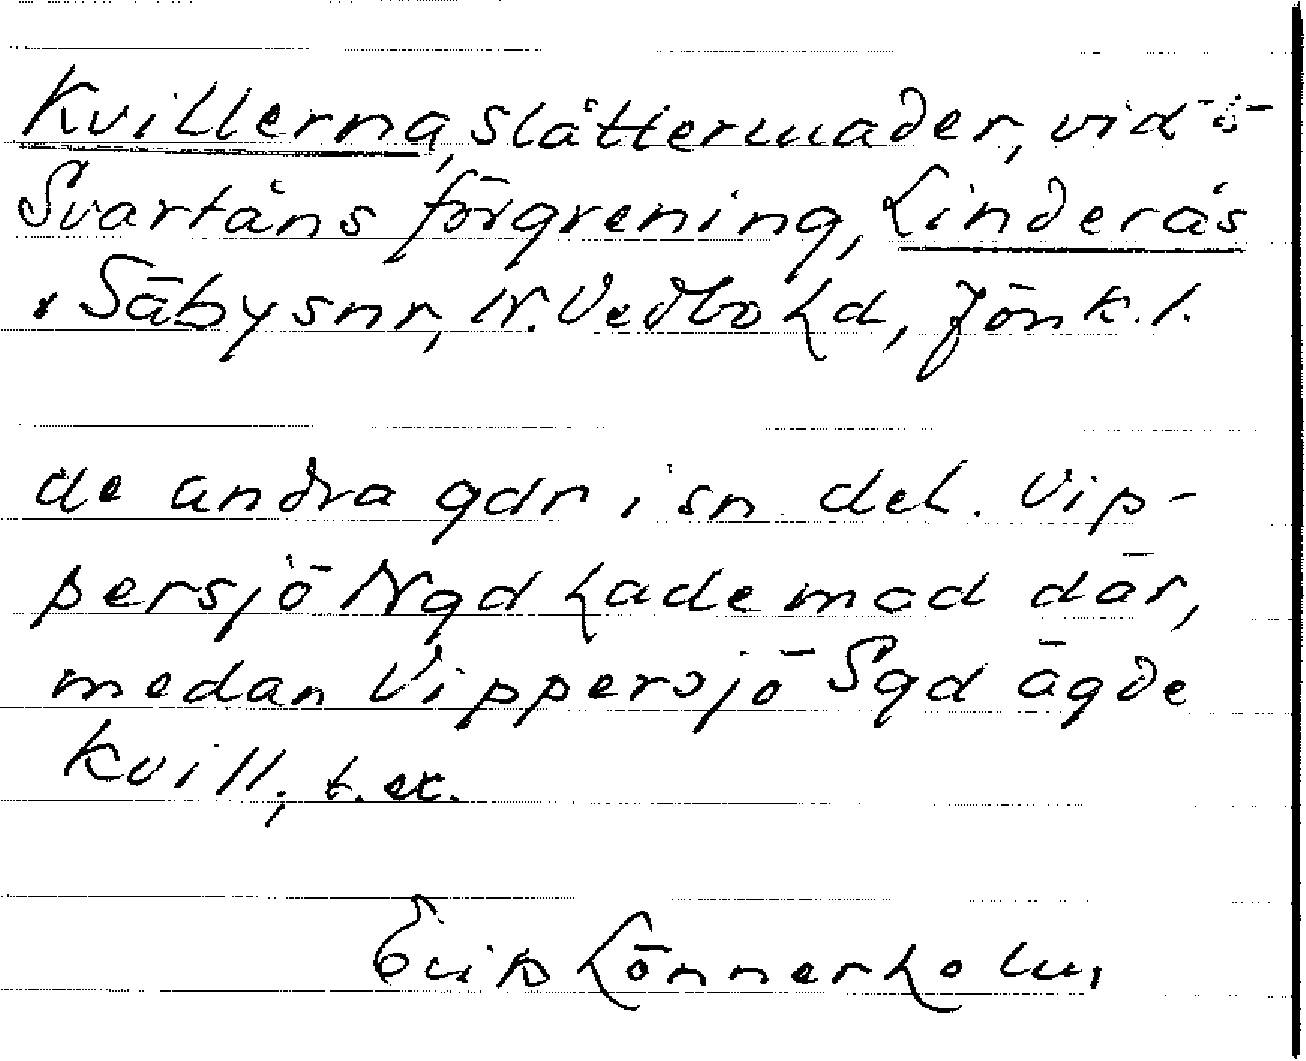 Kvillerna, slåttermader, vid
Svartåns förgrening, Linderås
, Säby snr, N. Vedbo hd, Jönk. l.
de andra gdr i sn del. Vip-
persjö Ngd hade mad där,
medan Vippersjö Sgd ägde
kvill, t. ex.
Erik Lönnerholm